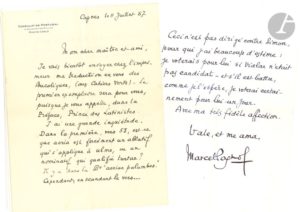 CONSULAT DE PORTUGAL
Cagnes 10 Juillet 57
Mon cher maître et ami,
Je vais bientôt envoyer chez l'imprimeur
ma traduction en vers des
Bucoliques, (aux Cahiers Verts). Le
premier exemplaire sera pour vous,
puisque je vous appelle, dans la
Préface, Prince des Latinistes
J'ai une grande inquiétude.
Dans la première, vers 58, est-ce
que aeria est forcément un attributif
qui s'applique à ulmo, ou un
nominatif qui qualifie turtur?
Il y a dans la "aeriae palumbes".
Cependant, en scandant le vers...
Ceci n'est pas dirigé contre Simon,
pour qui j'ai beaucoup d'estime:
je voterais pour lui si Violan n'était
pas candidat - et s'il est battu,
comme je l'espère, je voterai certainement
pour lui un jour.
Avec ma très fidèle affection.
Vale, et me ama,
Marcel Pagnol